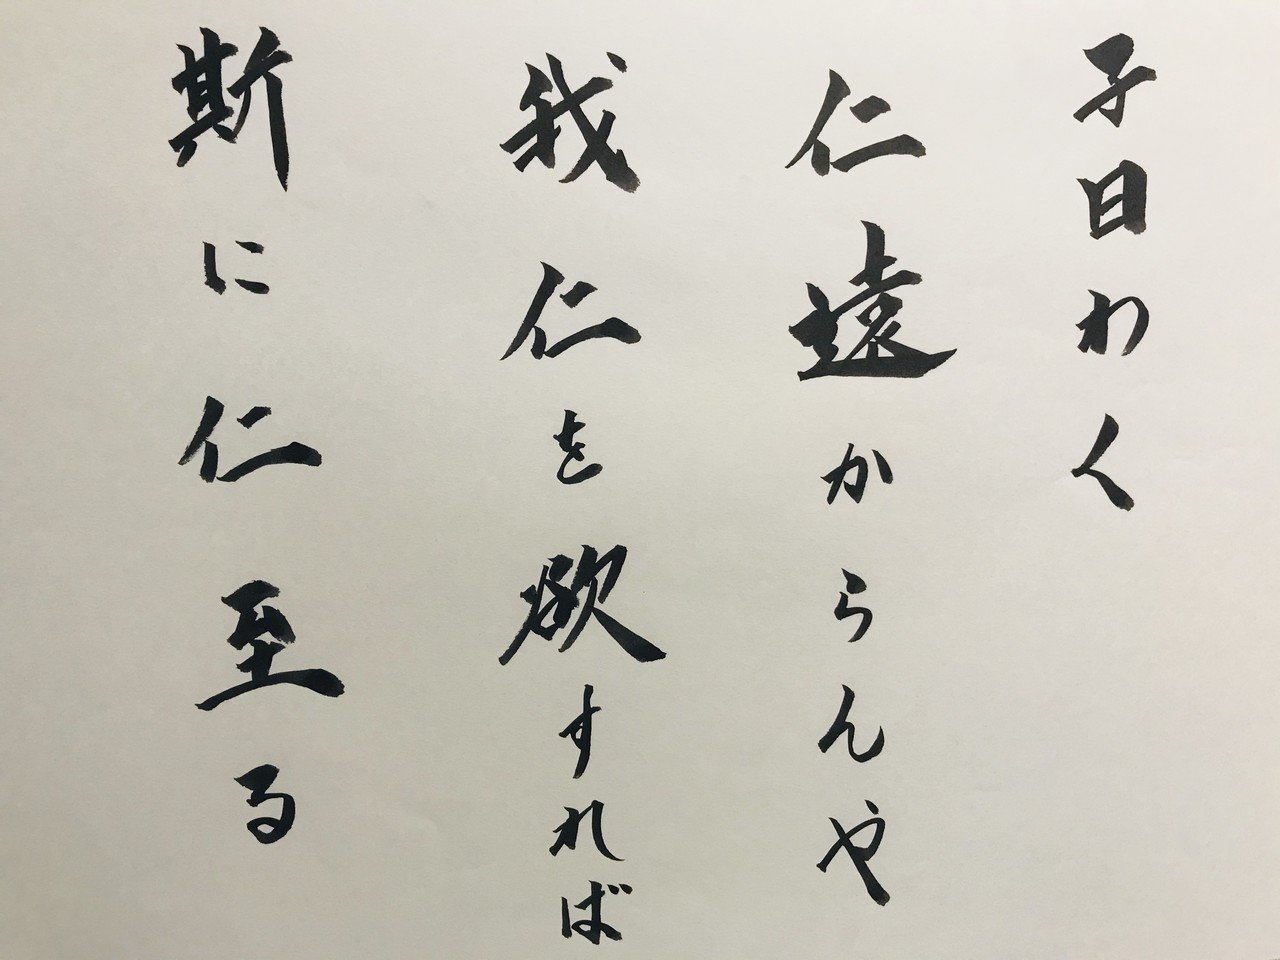 子曰わく
仁遠からんや
我仁を欲すれば
斯に仁至る